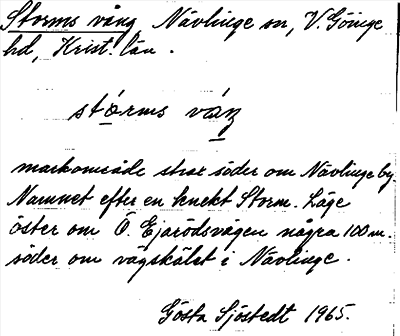 Storms vång Nävlinge sn, V. Göinge
hd, Krist. län.
stårms váŋ
markområde strax söder om Nävlinge by.
Namnet efter en knekt Storm. Läge
öster om Ö Ejarödsvägen några 100 m.
söder om vägskälet i Nävlinge.
Gösta Sjöstedt 1965.